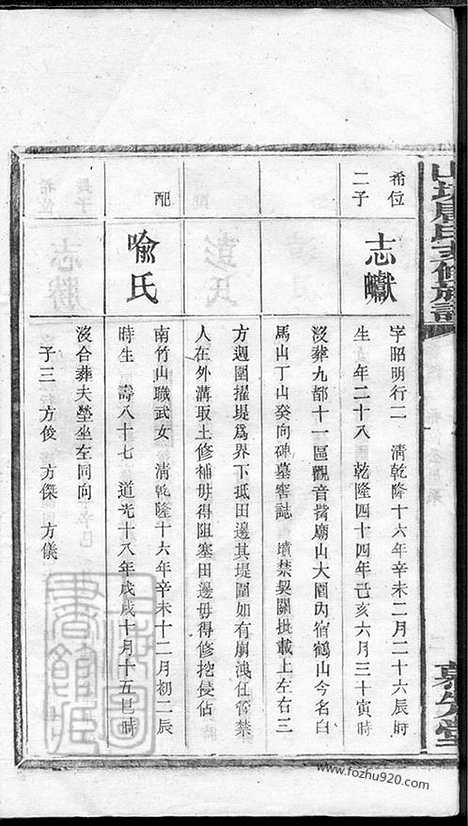 山坡周氏支修族譜
希位
二子
志巘
字昭明行二 清乾隆十六年辛未二月二十六辰時
生 年二十八 乾隆四十四年己亥六月三十寅時
沒葬九都十一區觀音觜廟山大圍內宿鶴山今名白
馬山丁山癸向碑墓窖誌 墳禁契關批載上左右三
方週圍擢堤為界下抵田邊其堤圍如有崩洩任管禁
人在外溝取土修補毋得阻塞田邊毋得修挖侵佔
配
喻氏
南竹山職武女 清乾隆十六年辛未十二月初二辰
時生 壽八十七 道光十八年戊戌十月十五巳時
沒合葬夫塋坐左同向
子三 方俊 方傑 方儀
慕先堂
www.fozhu920.com